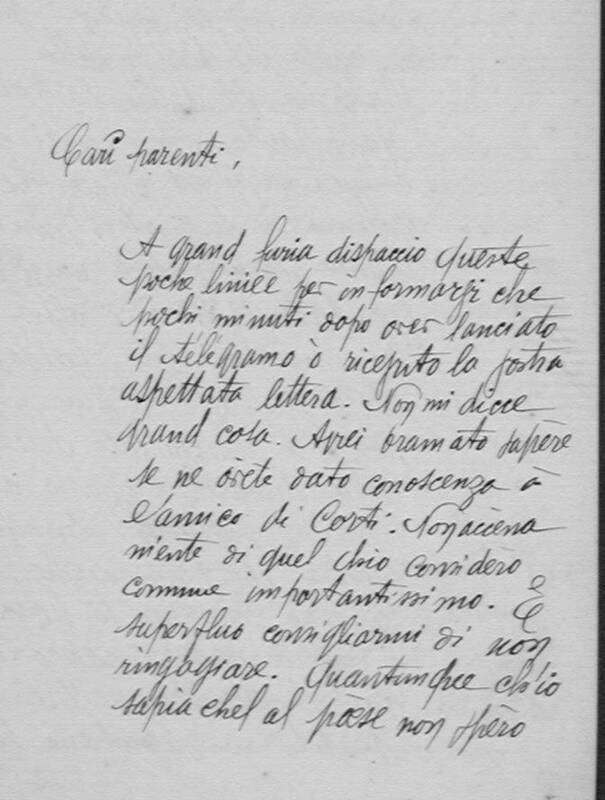 Cari parenti,
A grand furia dispaccio queste
poche liniee per informarvi che
pochi minuti dopo aver lanciato
il télégramo ò ricevuto la vostra
aspettata lettera. Non mi dicce
grand cosa. Avrei bramato sapère
se ne avete dato conoscenza à
l'amico di Corti. Non accena
niente di quel ch'io considèro
comme importantissimo. È
superfluo consigliarmi di non
ringagiare. Quantunque ch'io
sapia chel al paese non spèro